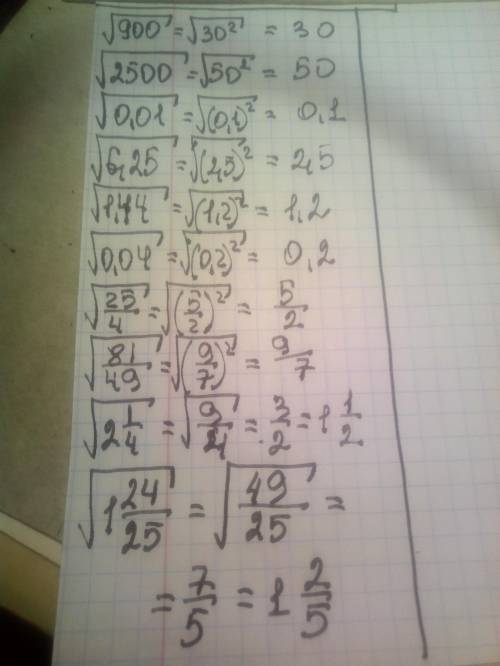 √900 = √30² = 30
√2500 = √50² = 50
√0,01 = √(0,1)² = 0,1
√6,25 = √(2,5)² = 2,5
√1,44 = √(1,2)² = 1,2
√0,04 = √(0,2)² = 0,2
√25/4 = √(5/2)² = 5/2
√81/49 = √(9/7)² = 9/7
√2 1/4 = √9/4 = 3/2 = 1 1/2
√1 24/25 = √49/25 =
= 7/5 = 1 2/5